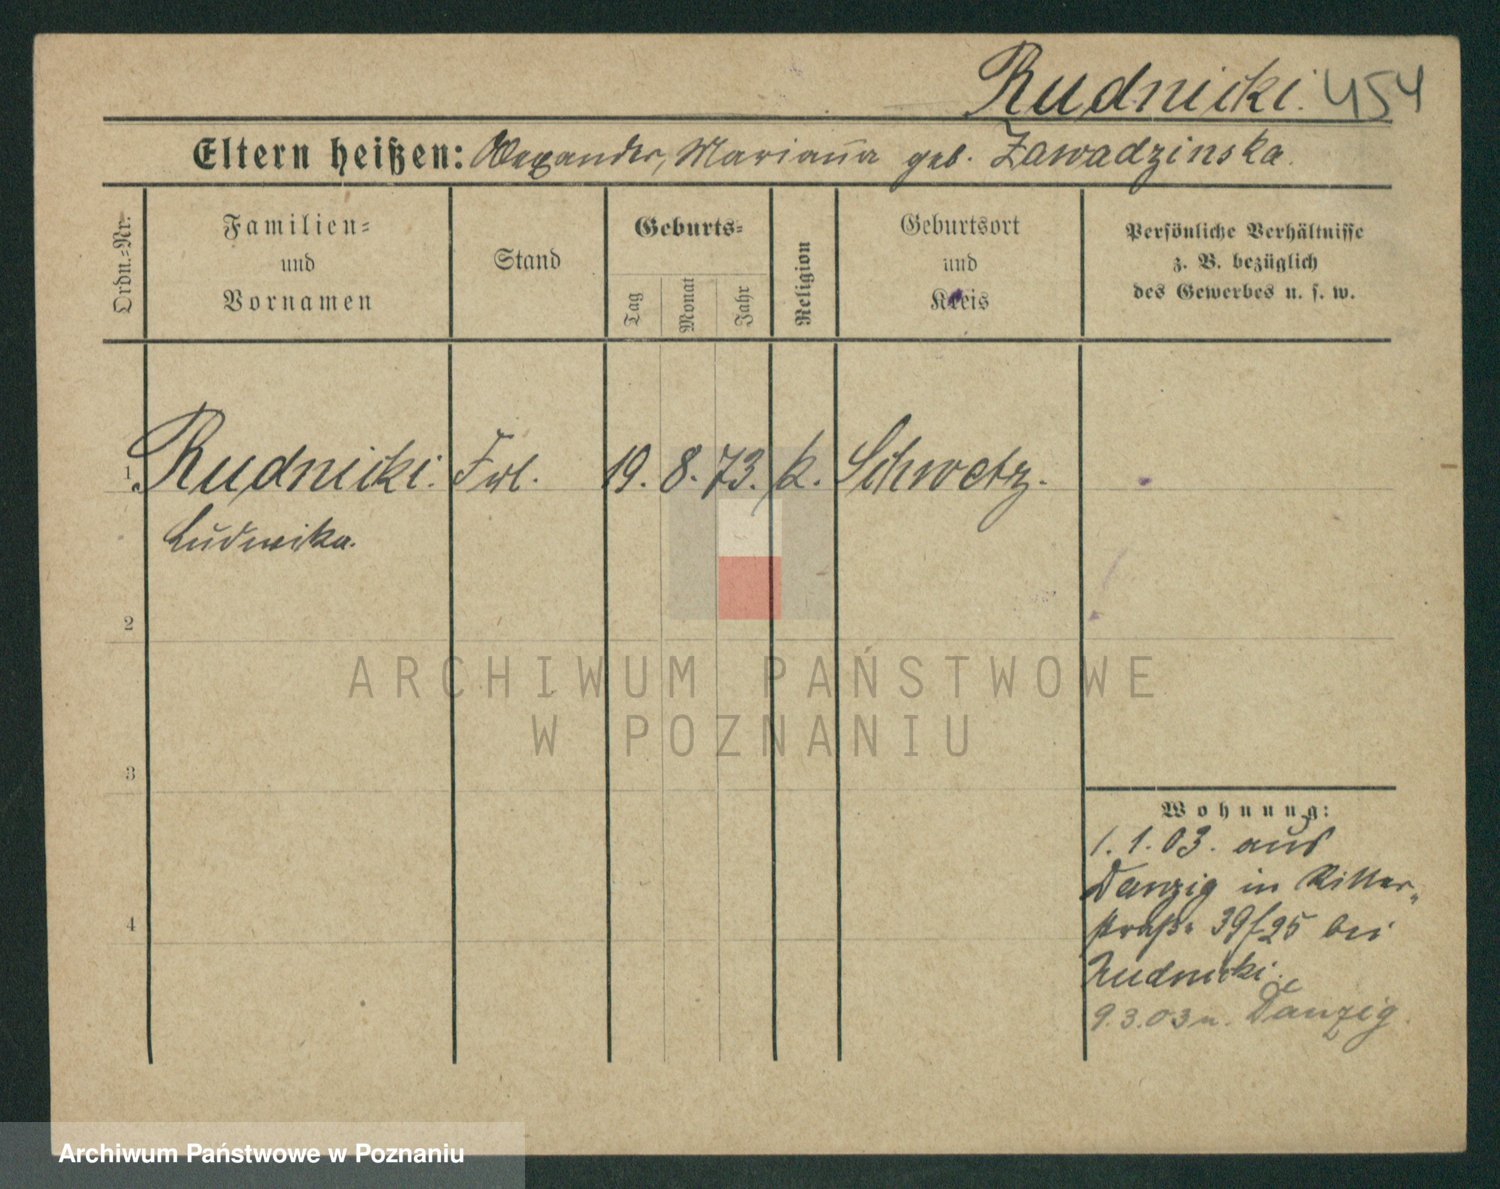 Rudnicki. 454
Eltern heißen: Alexander, Marianna geb. Zawadzinska.
Ordn.-Nr.
Familien-
und
Vornamen
Stand
Geburts-
Tag
Monat
Jahr
Religion
Geburtsort
und
Kreis
Persönliche Verhältnisse
z. B. bezüglich
des Gewerbes u. s. w.
1 Rudnicki. Frl. 19. 8. 73. k. Schwetz.
Ludwika.
2
3
4
Wohnung:
1. 1. 03. aus
Danzig in Ritter-
straße 39/25 bei
Rudnicki.
9. 3. 03 n. Danzig.
ARCHIWUM PAŃSTWOWE
W POZNANIU
Archiwum Państwowe w Poznaniu